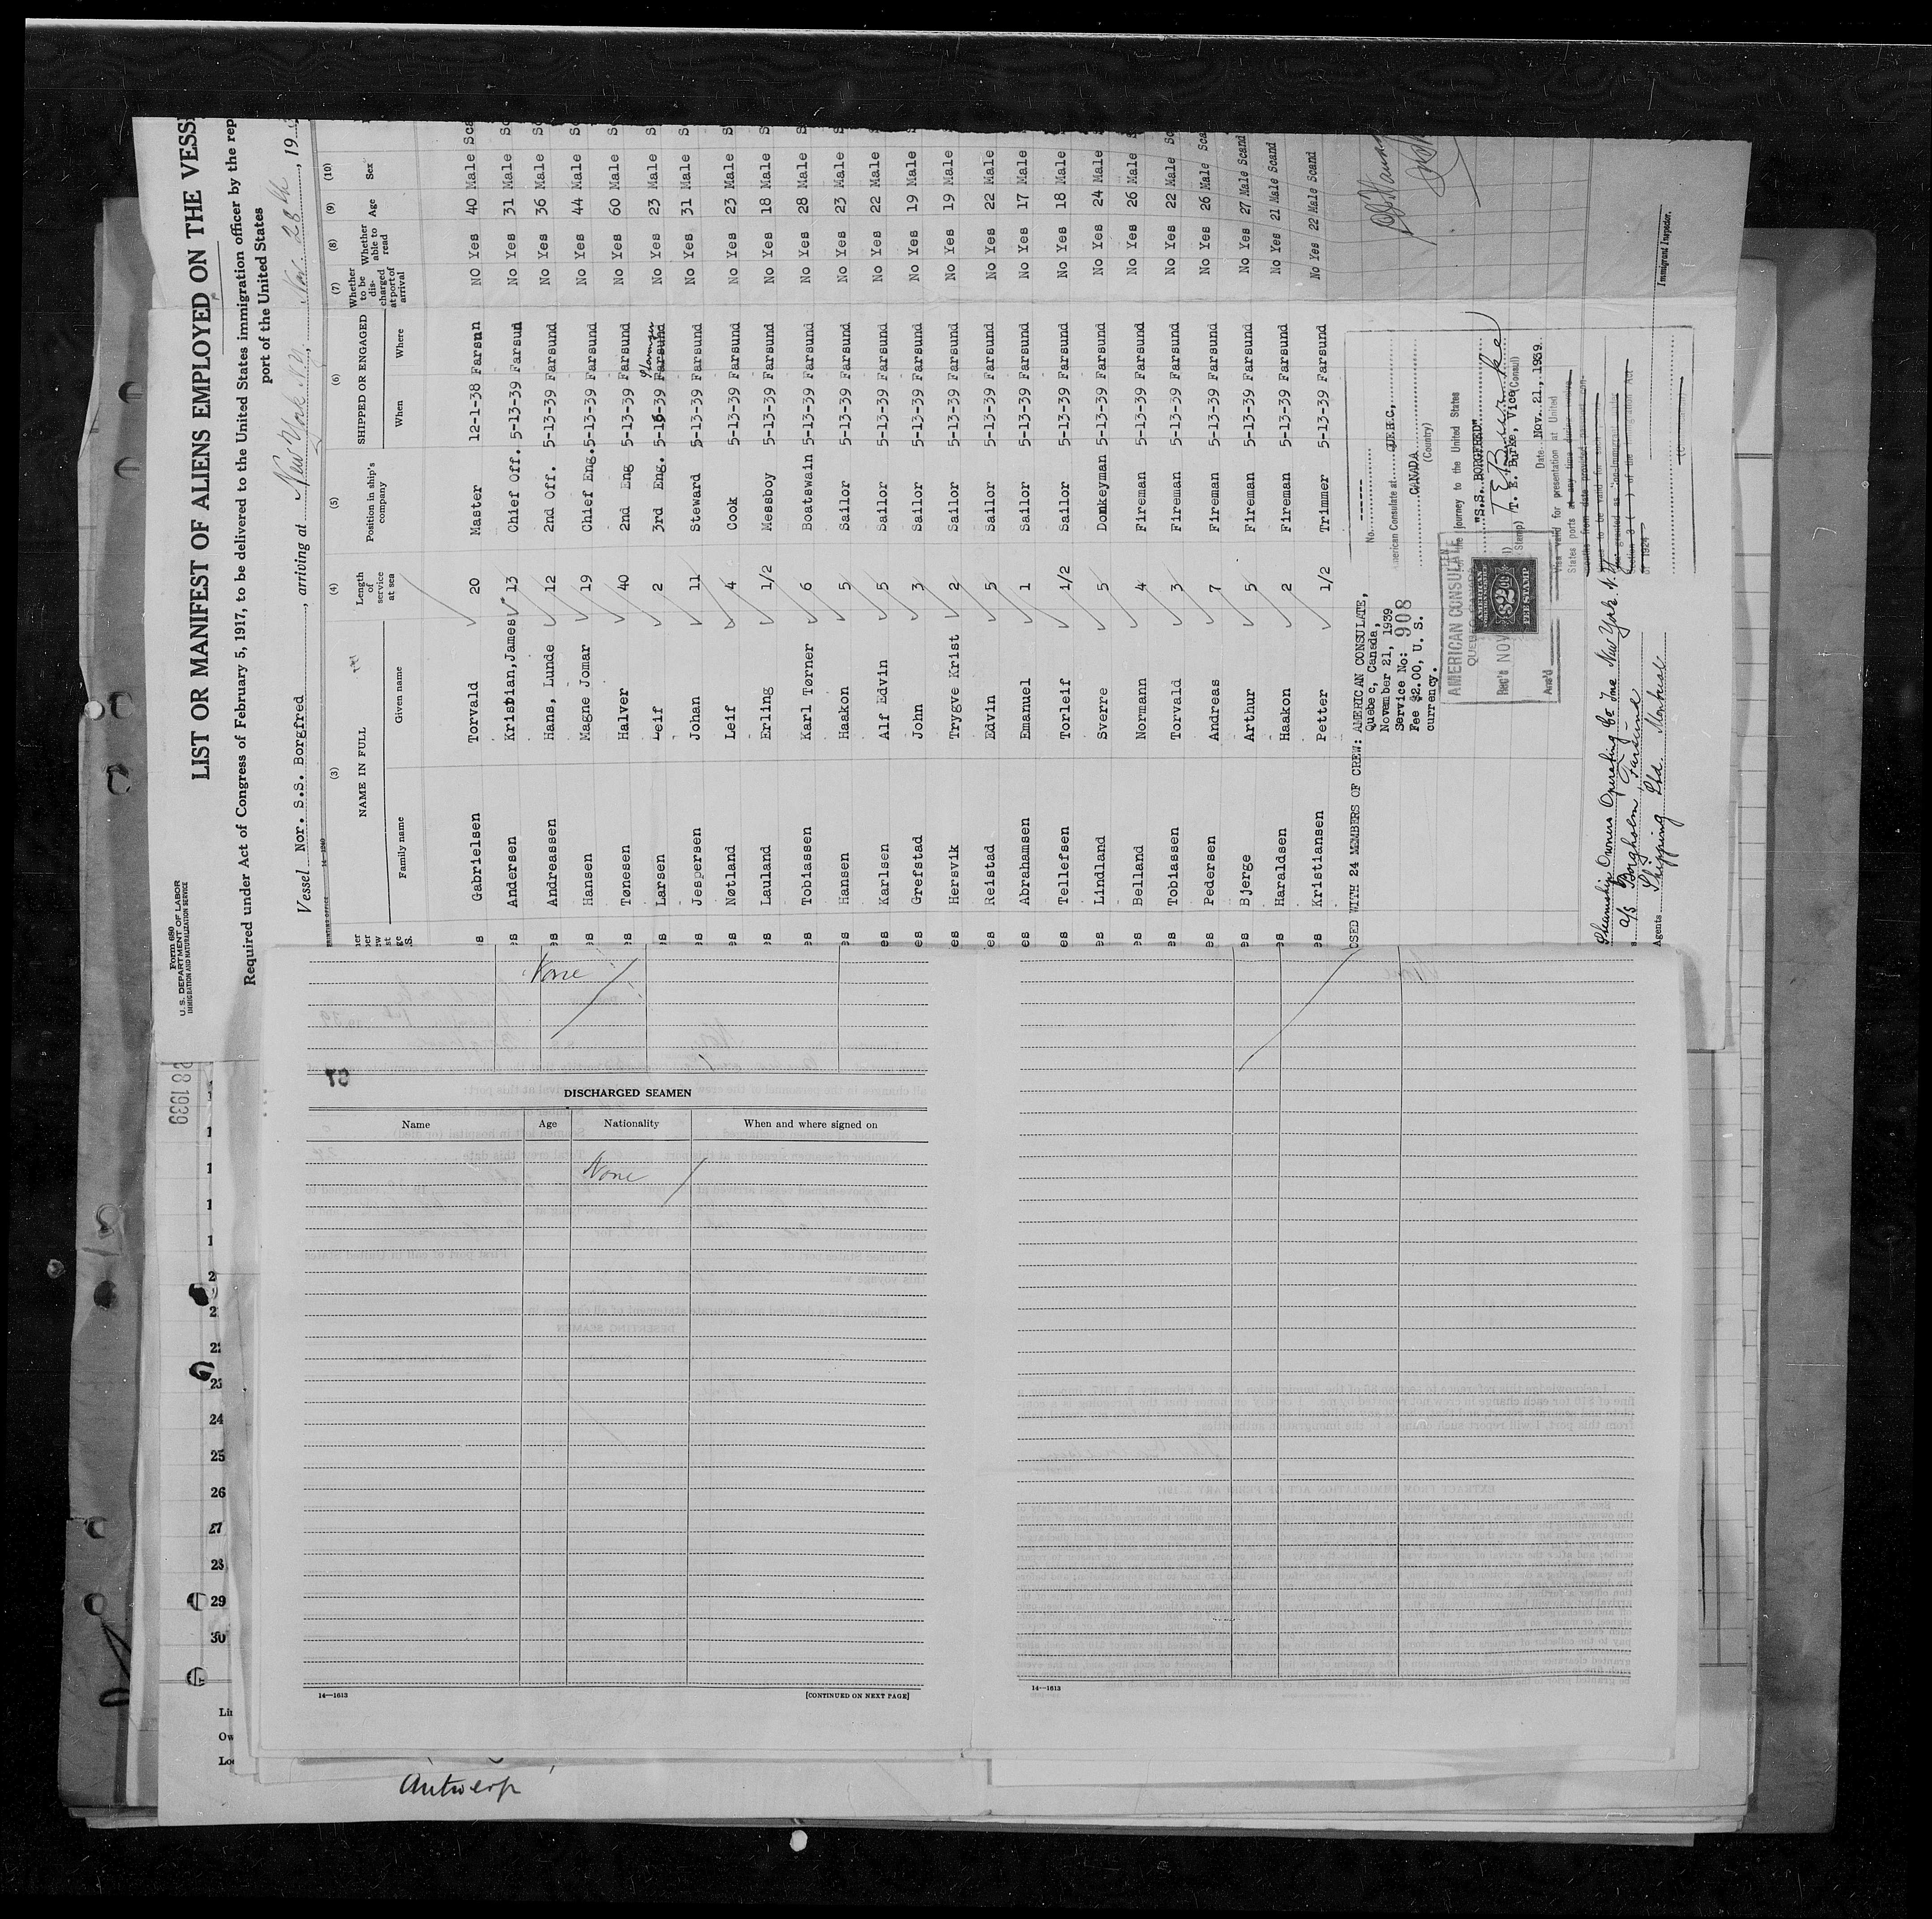 Form 680
U. S. DEPARTMENT OF LABOR
IMMIGRATION AND NATURALIZATION SERVICE
LIST OR MANIFEST OF ALIENS EMPLOYED ON THE VESS
Required under Act of Congress of February 5, 1917, to be delivered to the United States immigration officer by the rep
port of the United States
Vessel Nor. S.S. Borgfred, arriving at New York N.Y., Nov. 28th, 19
14—1240
(3) (4) (5) (6) (7) (8) (9) (10)
NAME IN FULL Length of service at sea Position in ship's company SHIPPED OR ENGAGED Whether to be discharged at port of arrival Whether able to read Age Sex
Family name Given name When Where
es Gabrielsen Torvald 20 Master 12-1-38 Farsnn NO Yes 40 Male Sca
es Andersen Kristbian, James 13 Chief Off. 5-13-39 Farsun No Yes 31 Male Sc
es Andreassen Hans, Lunde 12 2nd Off. 5-13-39 Farsund No Yes 36 Male Sc
es Hansen Magne Jomar 19 Chief Eng. 5-13-39 Farsund No Yes 44 Male Sc
es Tønesen Halver 40 2nd Eng 5-13-39 Farsund No Yes 60 Male Sc
es Larsen Leif 2 3rd Eng. 5-16-39 Farsund No Yes 23 Male S
es Jespersen Johan 11 Steward 5-13-39 Farsund No Yes 31 Male S
es Nøtland Leif 4 Cook 5-13-39 Farsund No Yes 23 Male S
es Lauland Erling 1/2 Messboy 5-13-39 Farsund No Yes 18 Male S
es Tobiassen Karl Tørner 6 Boatswain 5-13-39 Farsund No Yes 28 Male S
es Hansen Haakon 5 Sailor 5-13-39 Farsund No Yes 23 Male S
es Karlsen Alf Edvin 5 Sailor 5-13-39 Farsund No Yes 22 Male S
es Grefstad John 3 Sailor 5-13-39 Farsund No Yes 19 Male S
es Hersvik Trygve Krist 2 Sailor 5-13-39 Farsund No Yes 19 Male S
es Reistad Edvin 5 Sailor 5-13-39 Farsund No Yes 22 Male S
es Abrahamsen Emanuel 1 Sailor 5-13-39 Farsund No Yes 17 Male S
es Tellefsen Torleif 1/2 Sailor 5-13-39 Farsund No Yes 18 Male S
es Lindland Sverre 5 Donkeyman 5-13-39 Farsund No Yes 24 Male S
es Belland Normann 4 Fireman 5-13-39 Farsund No Yes 26 Male S
es Tobiassen Torvald 3 Fireman 5-13-39 Farsund No Yes 22 Male Sc
es Pedersen Andreas 7 Fireman 5-13-39 Farsund No Yes 26 Male Sca
es Bjerge Arthur 5 Fireman 5-13-39 Farsund No Yes 27 Male Scand
es Haraldsen Haakon 2 Fireman 5-13-39 Farsund No Yes 21 Male Scand
es Kristiansen Petter 1/2 Trimmer 5-13-39 Farsund No Yes 22 Male Scand
OSED WITH 24 MEMBERS OF CREW: AMERICAN CONSULATE,
Quebec, Canada,
November 21, 1939
Service No: 908
Fee $2.00, U. S.
currency.
No. -----
American Consulate at QUEBEC,
CANADA
(Country)
journey to the United States
"S.S. BORGFRED"
T. E. Burke
T. E. Burke, Vice (Consul)
Date Nov. 21, 1939.
Visa valid for presentation at United
States ports at any time during twelve
AMERICAN CONSULATE
QUEBEC, CANADA
Rec'd NOV
Ans'd
AMERICAN
$2.00
FEE STAMP
Steamship Owners Operating Co Inc New York N.Y.
a/s Borgholm, Farsund
Agents Shipping Ltd. Montreal
Immigrant Inspector.
28 1939
None
DISCHARGED SEAMEN
Name Age Nationality When and where signed on
None
14—1613 [CONTINUED ON NEXT PAGE]
14—1613
23
24
25
26
27
28
29
30
Antwerp